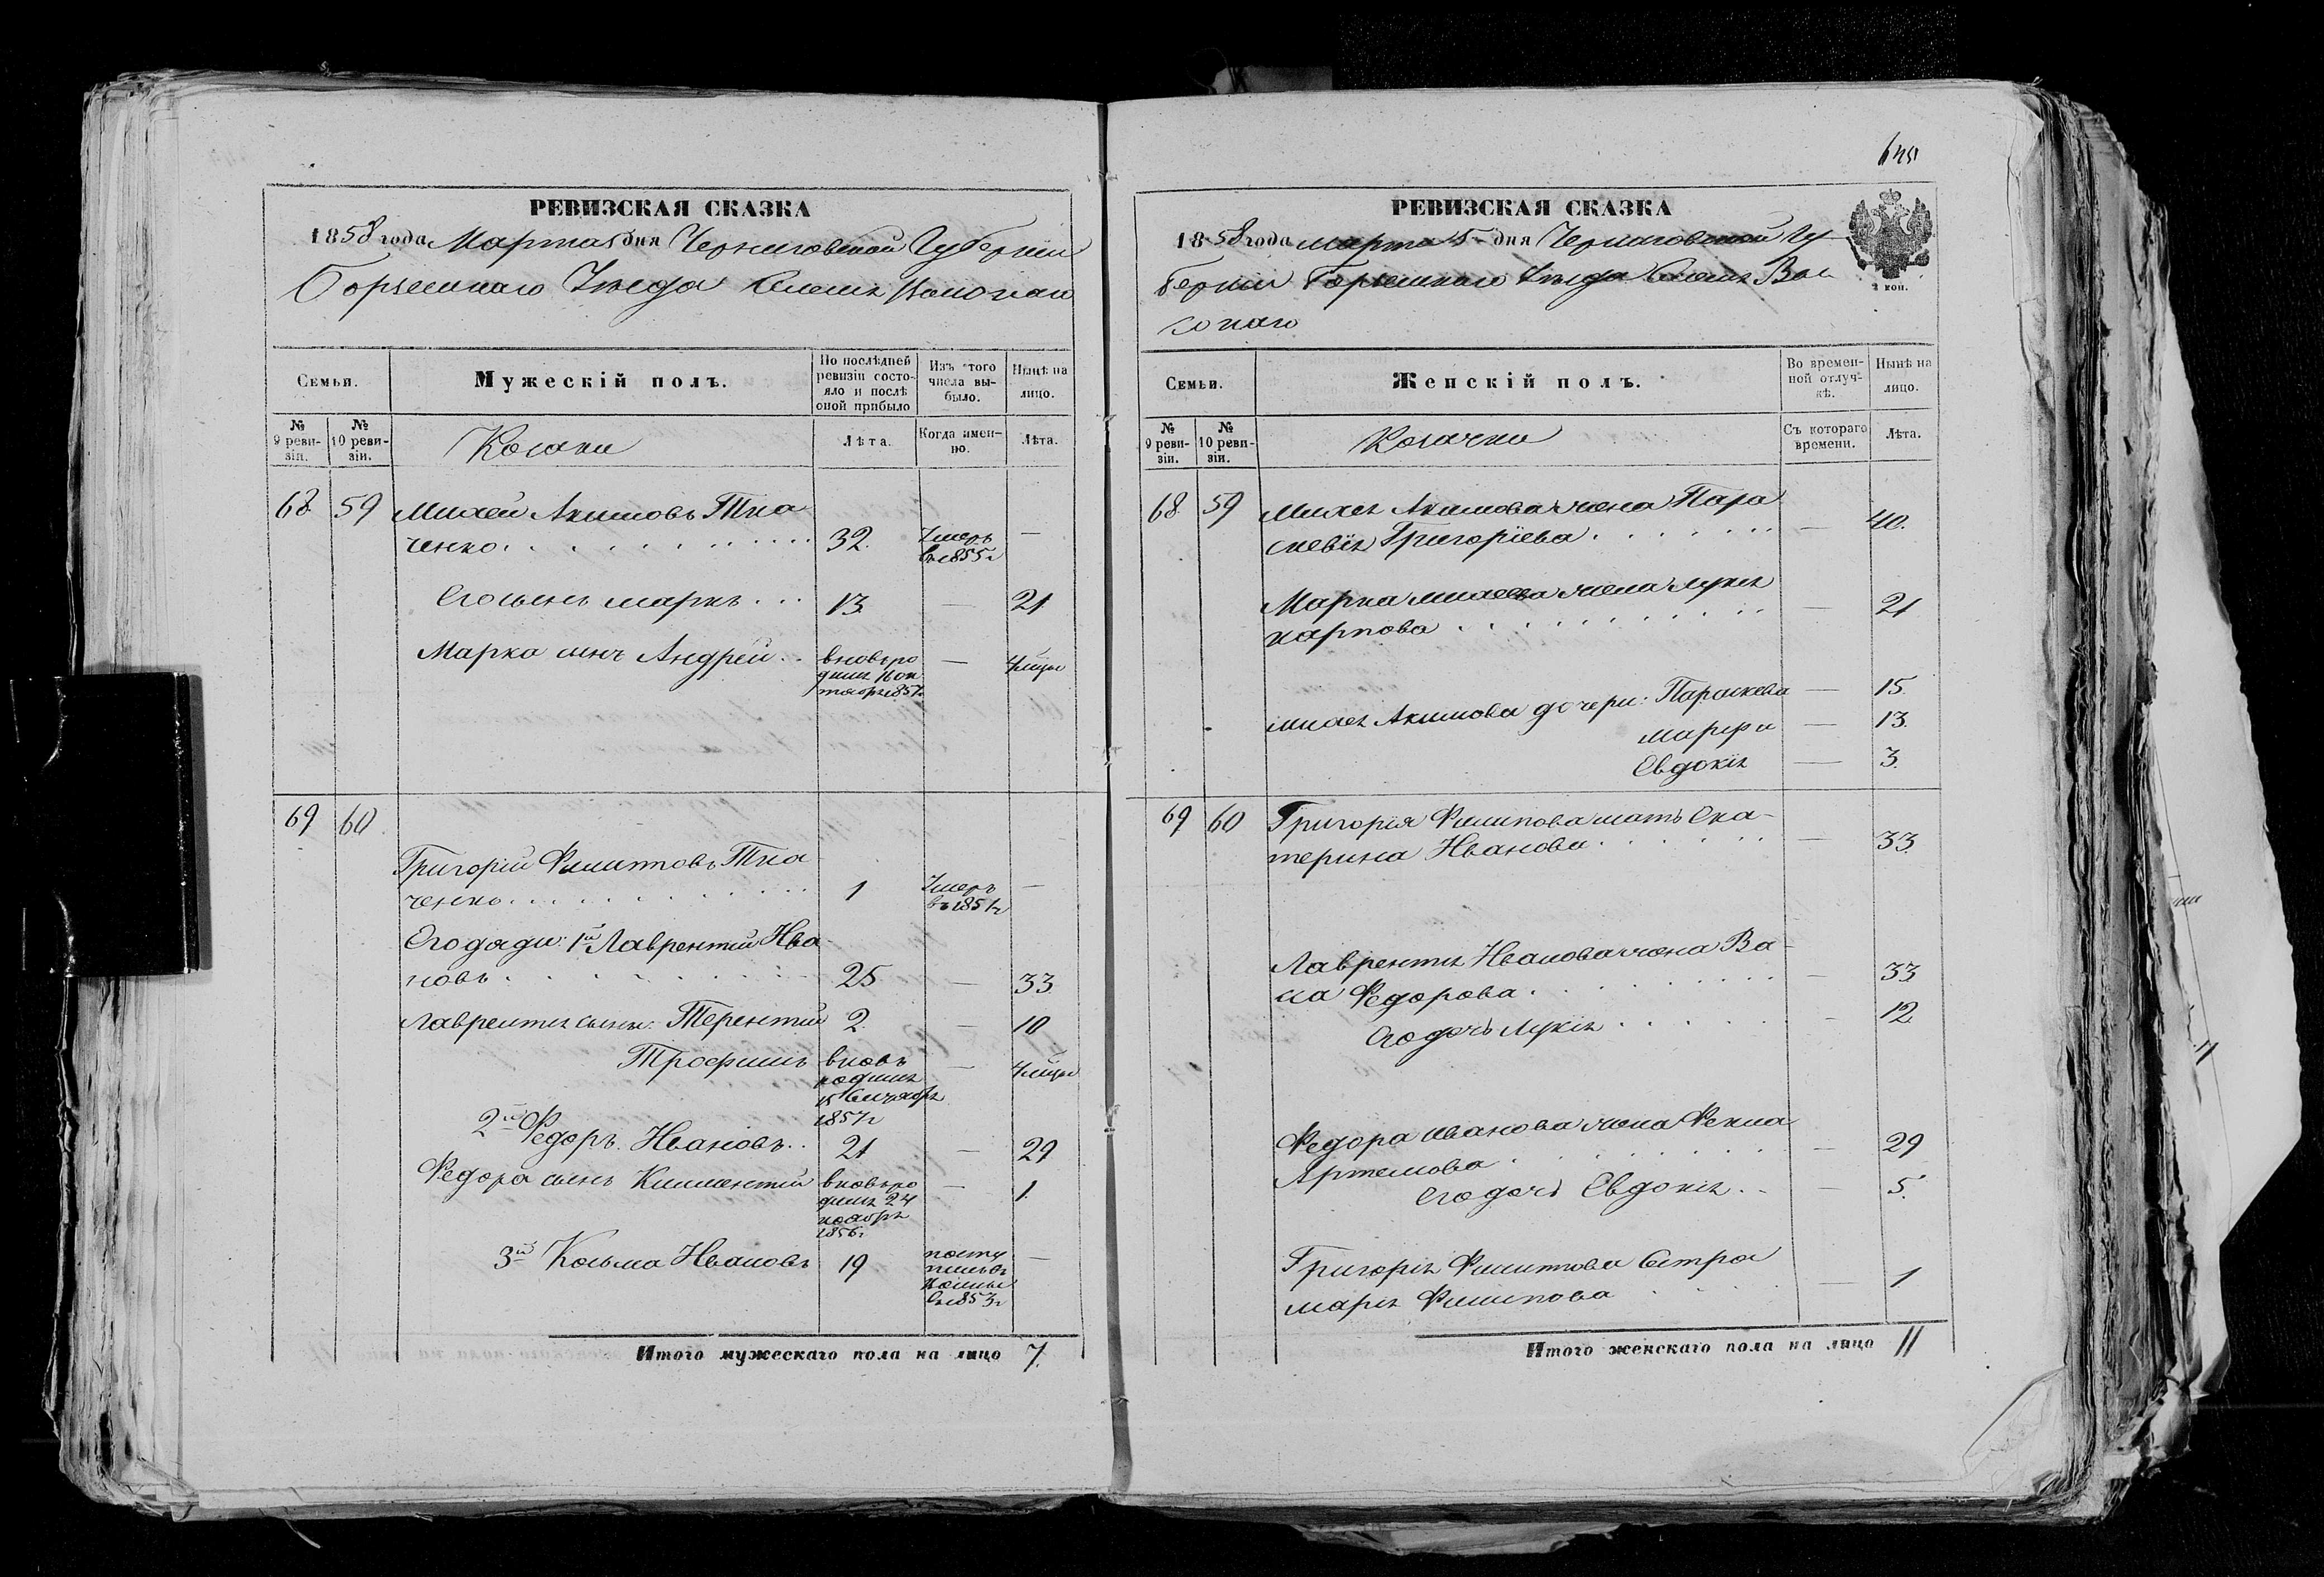 РЕВИЗСКАЯ СКАЗКА
1858 года Марта 5 дня Черниговской Губерніи
Борзенскаго Уезда
Семьи.
Мужескій полъ.
По послѣдней ревизіи состояло и послѣ оной прибыло
Изъ этого числа выбыло.
Нынѣ на лицо.
№ 9 ревизіи.
№ 10 ревизіи.
Козаки
Лѣта.
Когда именно.
Лѣта.
68 59 Михей Акимовъ Тка
ченко 32. Умеръ въ 1855 г —
Его сынъ Марко 13 — 21
Марка сынъ Андрей вновь ро — 4 мцы
69 60
Григорій Филиповъ Тка
ченко 1 Умеръ въ 1851 г —
Его дяди: 1й Лаврентій Ива
новъ 25 — 33
Лаврентія сыны: Терентий 2 — 10
Трофимъ вновь родился 15 1857 г — 4 мцы
2й Федоръ Ивановъ 21 — 29
Федора сынъ Климентий вновь ро дился 24 ноября 1856 г — 1.
3й Козьма Ивановъ 19 1853 г —
Итого мужескаго пола на лицо 7.
РЕВИЗСКАЯ СКАЗКА
1858 года марта 5 дня Черниговской Гу
берніи Борзенскаго Уезда
2 коп.
Семьи.
Женскій полъ.
Во временной отлучкѣ.
Нынѣ на лицо.
№ 9 ревизіи.
№ 10 ревизіи.
Козачки
Съ котораго времени.
Лѣта.
68 59 Михея Акимова жена Пара
скевія Григоріева — 40.
Марка Михеева жена Лукія
Карпова — 21
Михея Акимова дочери: Параскева — 15.
Марфа — 13.
Евдокія — 3.
69 60 Григорія Филипова мать Ека-
терина Иванова — 33.
Лаврентія Иванова жена Ва-
са Федорова — 33
Его дочь Лукія — 12.
Федора Иванова жена Фекла
Артемова — 29
Его дочь Евдокія — 5.
Григорія Филипова Сестра
Марія Филипова — 1
Итого женскаго пола на лицо 11